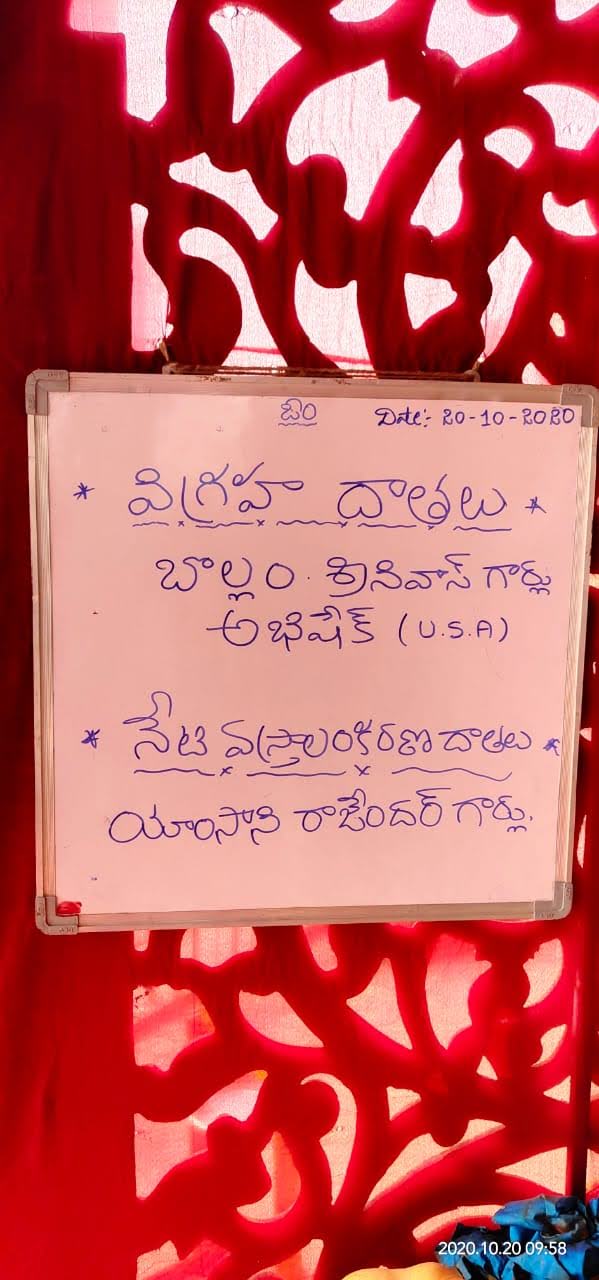 ఓం
Date:- 20-10-2020
* విగ్రహ దాతలు *
బొల్లం. శ్రీనివాస్ గార్లు
అభిషేక్ (U.S.A)
* నేటి వస్త్రాలంకరణ దాతలు *
యాంసాని రాజేందర్ గార్లు.
2020.10.20 09:58